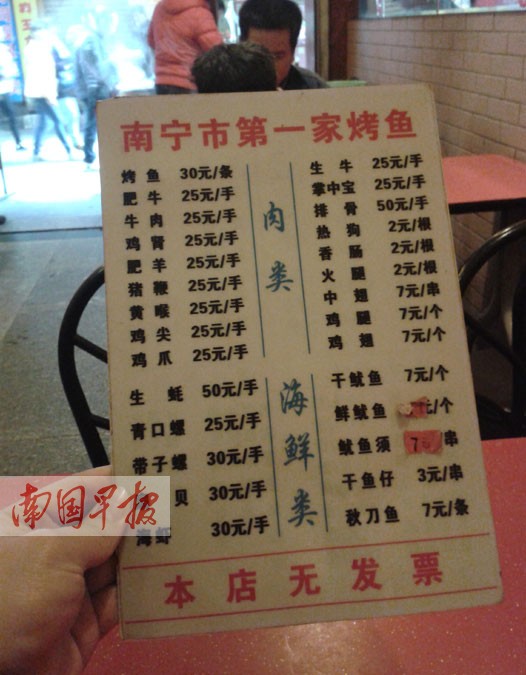 南宁市第一家烤鱼
烤鱼 30元/条
肥牛 25元/手
牛肉 25元/手
鸡肾 25元/手
肥羊 25元/手
猪鞭 25元/手
黄喉 25元/手
鸡尖 25元/手
鸡爪 25元/手
肉类
生牛 25元/手
掌中宝 25元/手
排骨 50元/手
热狗 2元/根
香肠 2元/根
火腿 2元/根
中翅 7元/串
鸡腿 7元/个
鸡翅 7元/个
生蚝 50元/手
青口螺 25元/手
带子螺 30元/手
贝 30元/手
海虾 30元/手
海鲜类
干鱿鱼 7元/个
鲜鱿鱼 元/个
鱿鱼须 7 /串
干鱼仔 3元/串
秋刀鱼 7元/条
本店无发票
南国早报